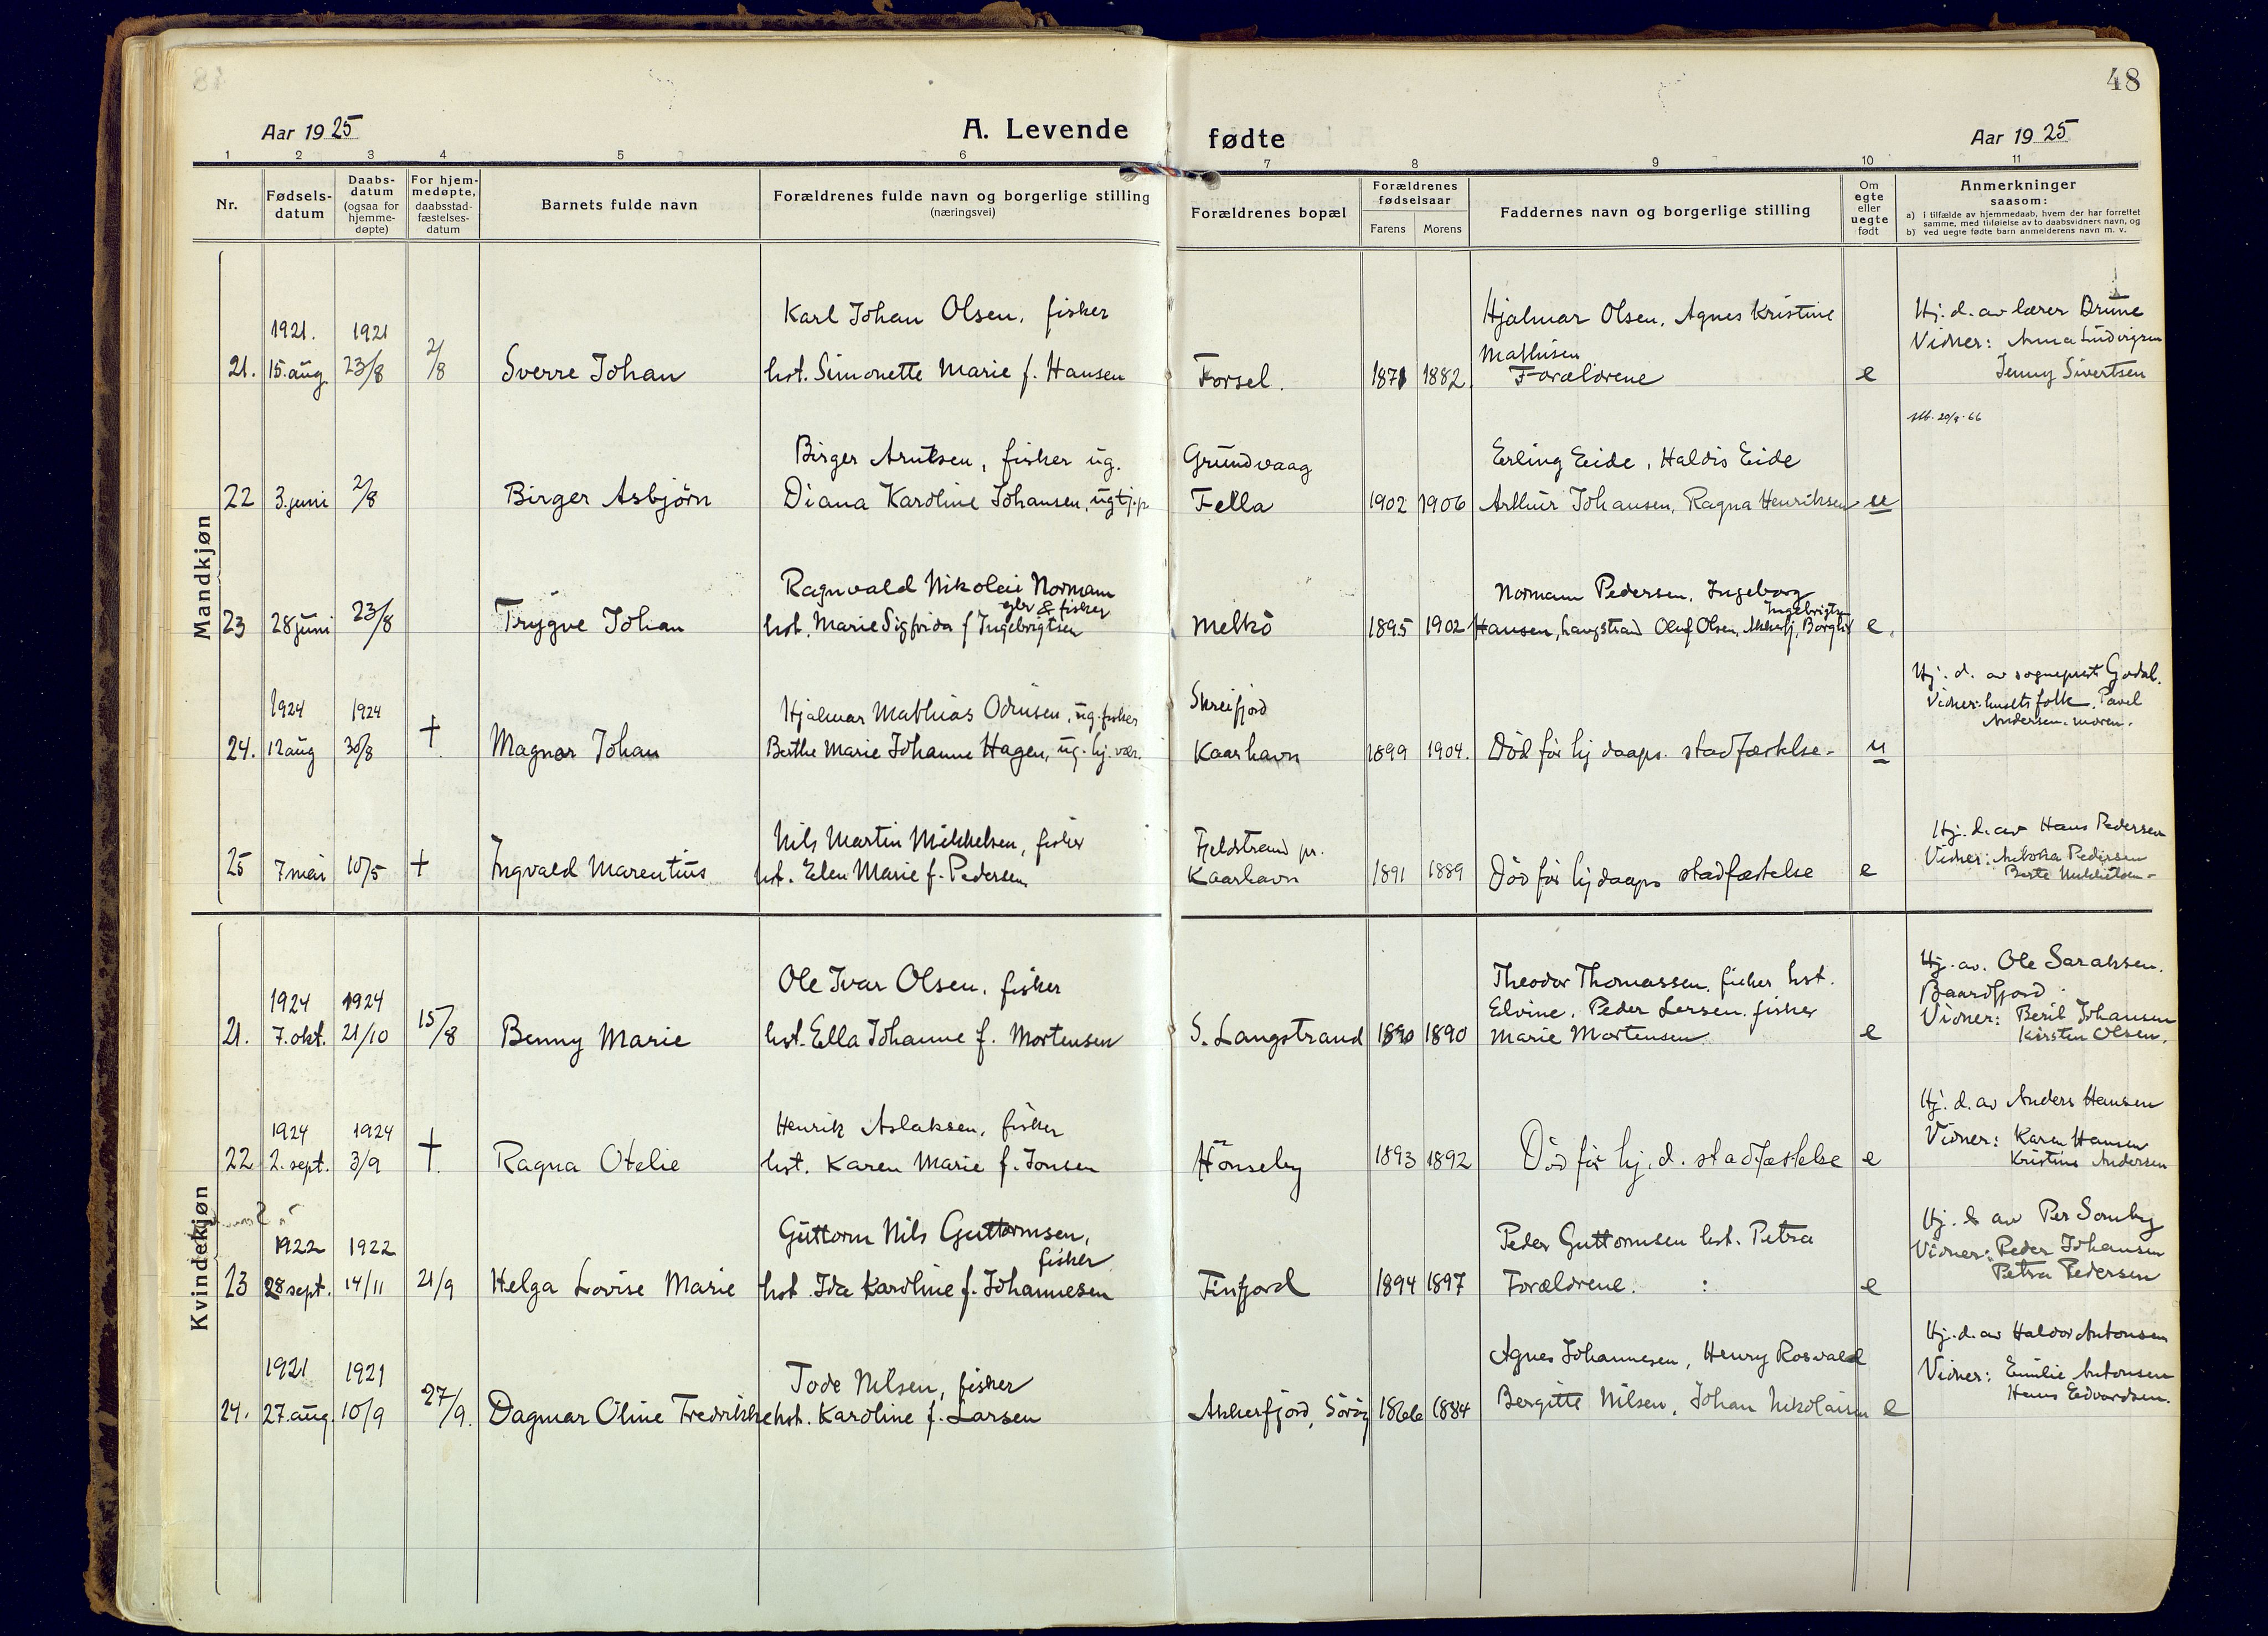 48
Aar 1925
A. Levende
fødte
Aar 1925
1 2 3 4 5 6 7 8 9 10 11
Nr.
Fødsels-
datum
Daabs-
datum
(ogsaa for
hjemme-
døpte)
For hjem-
medøpte,
daabsstad-
fæstelses-
datum
Barnets fulde navn
Forældrenes fulde navn og borgerlige stilling
(næringsvei)
Forældrenes bopæl
Forældrenes
fødselsaar
Farens Morens
Faddernes navn og borgerlige stilling
Om
egte
eller
uegte
født
Anmerkninger
saasom:
a) i tilfælde av hjemmedaab, hvem der har forrettet
samme, med tilføielse av to daabsvidners navn, og
b) ved uegte fødte barn anmelderens navn m. v.
Mandkjøn
Karl Johan Olsen, fisker
Hjalmar Olsen, Agnes Kristine
Hj. d. av lærer Brune
1921. 1921
Mathisen
Vidner: Anna Ludvigsen
21. 15. aug. 23/8 2/8 Sverre Johan hst. Simonette Marie f. Hansen Forsel. 1871 1882 Forældrene e Jenny Sivertsen
20/8-66
Birger Arntsen, fisker ug. Grundvaag Erling Eide, Haldis Eide
22 3. juni 2/8 Birger Asbjørn Diana Karoline Johansen, ug tj.p. Fella 1902 1906 Arthur Johansen, Ragna Henriksen u
Ragnvald Nikolai Normann Normann Pedersen, Ingeborg
gbr & fisker Ingebrigtsen
23 28 juni 23/8 Trygve Johan hst. Marie Sigfrida f Ingebrigtsen Melkö 1895 1902 Hansen, Langstrand Oluf Olsen, Akkerfj, Borghi e.
Hj. d. av sogneprest Gjødal.
1924 1924 Hjalmar Mathias Odinsen, ug. fisker Skreifjord Vidner: husets folk. Pavel
Andersen. moren.
24. 12 aug 30/8 † Magnar Johan Berthe Marie Johanne Hagen, ug. hj. vær. Kaarhavn 1899 1904. Död för hj daaps. stadfæstelse. u
Nils Martin Mikkelsen, fisker Fjeldstrand pr. Hj. d. av Hans Pedersen
Vidner: Pedersen
25 7 mai 10/5 † Ingvald Marentius hst. Elen Marie f. Pedersen Kaarhavn 1891 1889 Död för hj daaps stadfæstelse e Berte Mikkelsen
Kvindekjøn
Ole Ivar Olsen, fisker Theodor Thomassen, fisker hst. Hj. av. Ole Saraksen.
1924 1924 Elvine, Peder Larsen. fisker Baardfjord
Vidner: Berit Johansen
21. 7. okt. 21/10 15/8 Benny Marie hst. Ella Johanne f. Mortensen S. Langstrand 1890 1890 Marie Mortensen e Kirsten Olsen.
1924 1924 Henrik Aslaksen, fisker Hj. d. av Anders Hansen
Vidner: Karen Hansen
22 2. sept. 3/9 †. Ragna Otelie hst. Karen Marie f. Jonsen Hönseby 1893 1892 Död för hj. d. stadfæstelse e Kristine Andersen
Guttorm Nils Guttormsen, Peder Guttormsen hst. Petra Hj. d av Per Somby
1922 1922 fisker Vidner: Peder Johansen
23 28 sept. 14/11 21/9 Helga Lovise Marie hst. Ida Karoline f. Johannesen Finfjord 1894 1897 Forældrene. : e Petra Pedersen
Agnes Johannesen, Henry Rosvald Hj. d. av Haldor Antonsen
1921 1921 Tode Nilsen, fisker Vidner: Emilie Antonsen
24. 27. aug. 10/9 27/9. Dagmar Oline Fredrikke hst. Karoline f. Larsen Akkerfjord, Söröy 1866 1884 Bergitte Nilsen, Johan Nikolaisen e Hans Edvardsen.